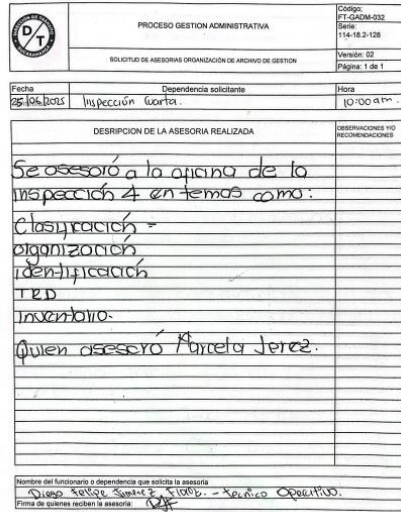 DIRECCIÓN DE TRÁNSITO
D/T
PROCESO GESTION ADMINISTRATIVA
SOLICITUD DE ASESORIAS ORGANIZACIÓN DE ARCHIVO DE GESTION
Código:
FT-GADM-032
Serie:
114-18.2-128
Versión: 02
Página: 1 de 1
Fecha
Dependencia solicitante
Hora
25/06/2025
Inspección Cuarta.
10:00 am.
DESRIPCION DE LA ASESORIA REALIZADA
OBSERVACIONES Y/O
RECOMENDACIONES
Se asesoró a la oficina de la
inspección 4 en temas como:
Clasificación -
organización
identificación
TRD
Inventario.
Quien asesoró Marcela Jerez.
Nombre del funcionario o dependencia que solicita la asesoria
Diego Felipe Jimenez - Tecnico Operativo.
Firma de quienes reciben la asesoria: